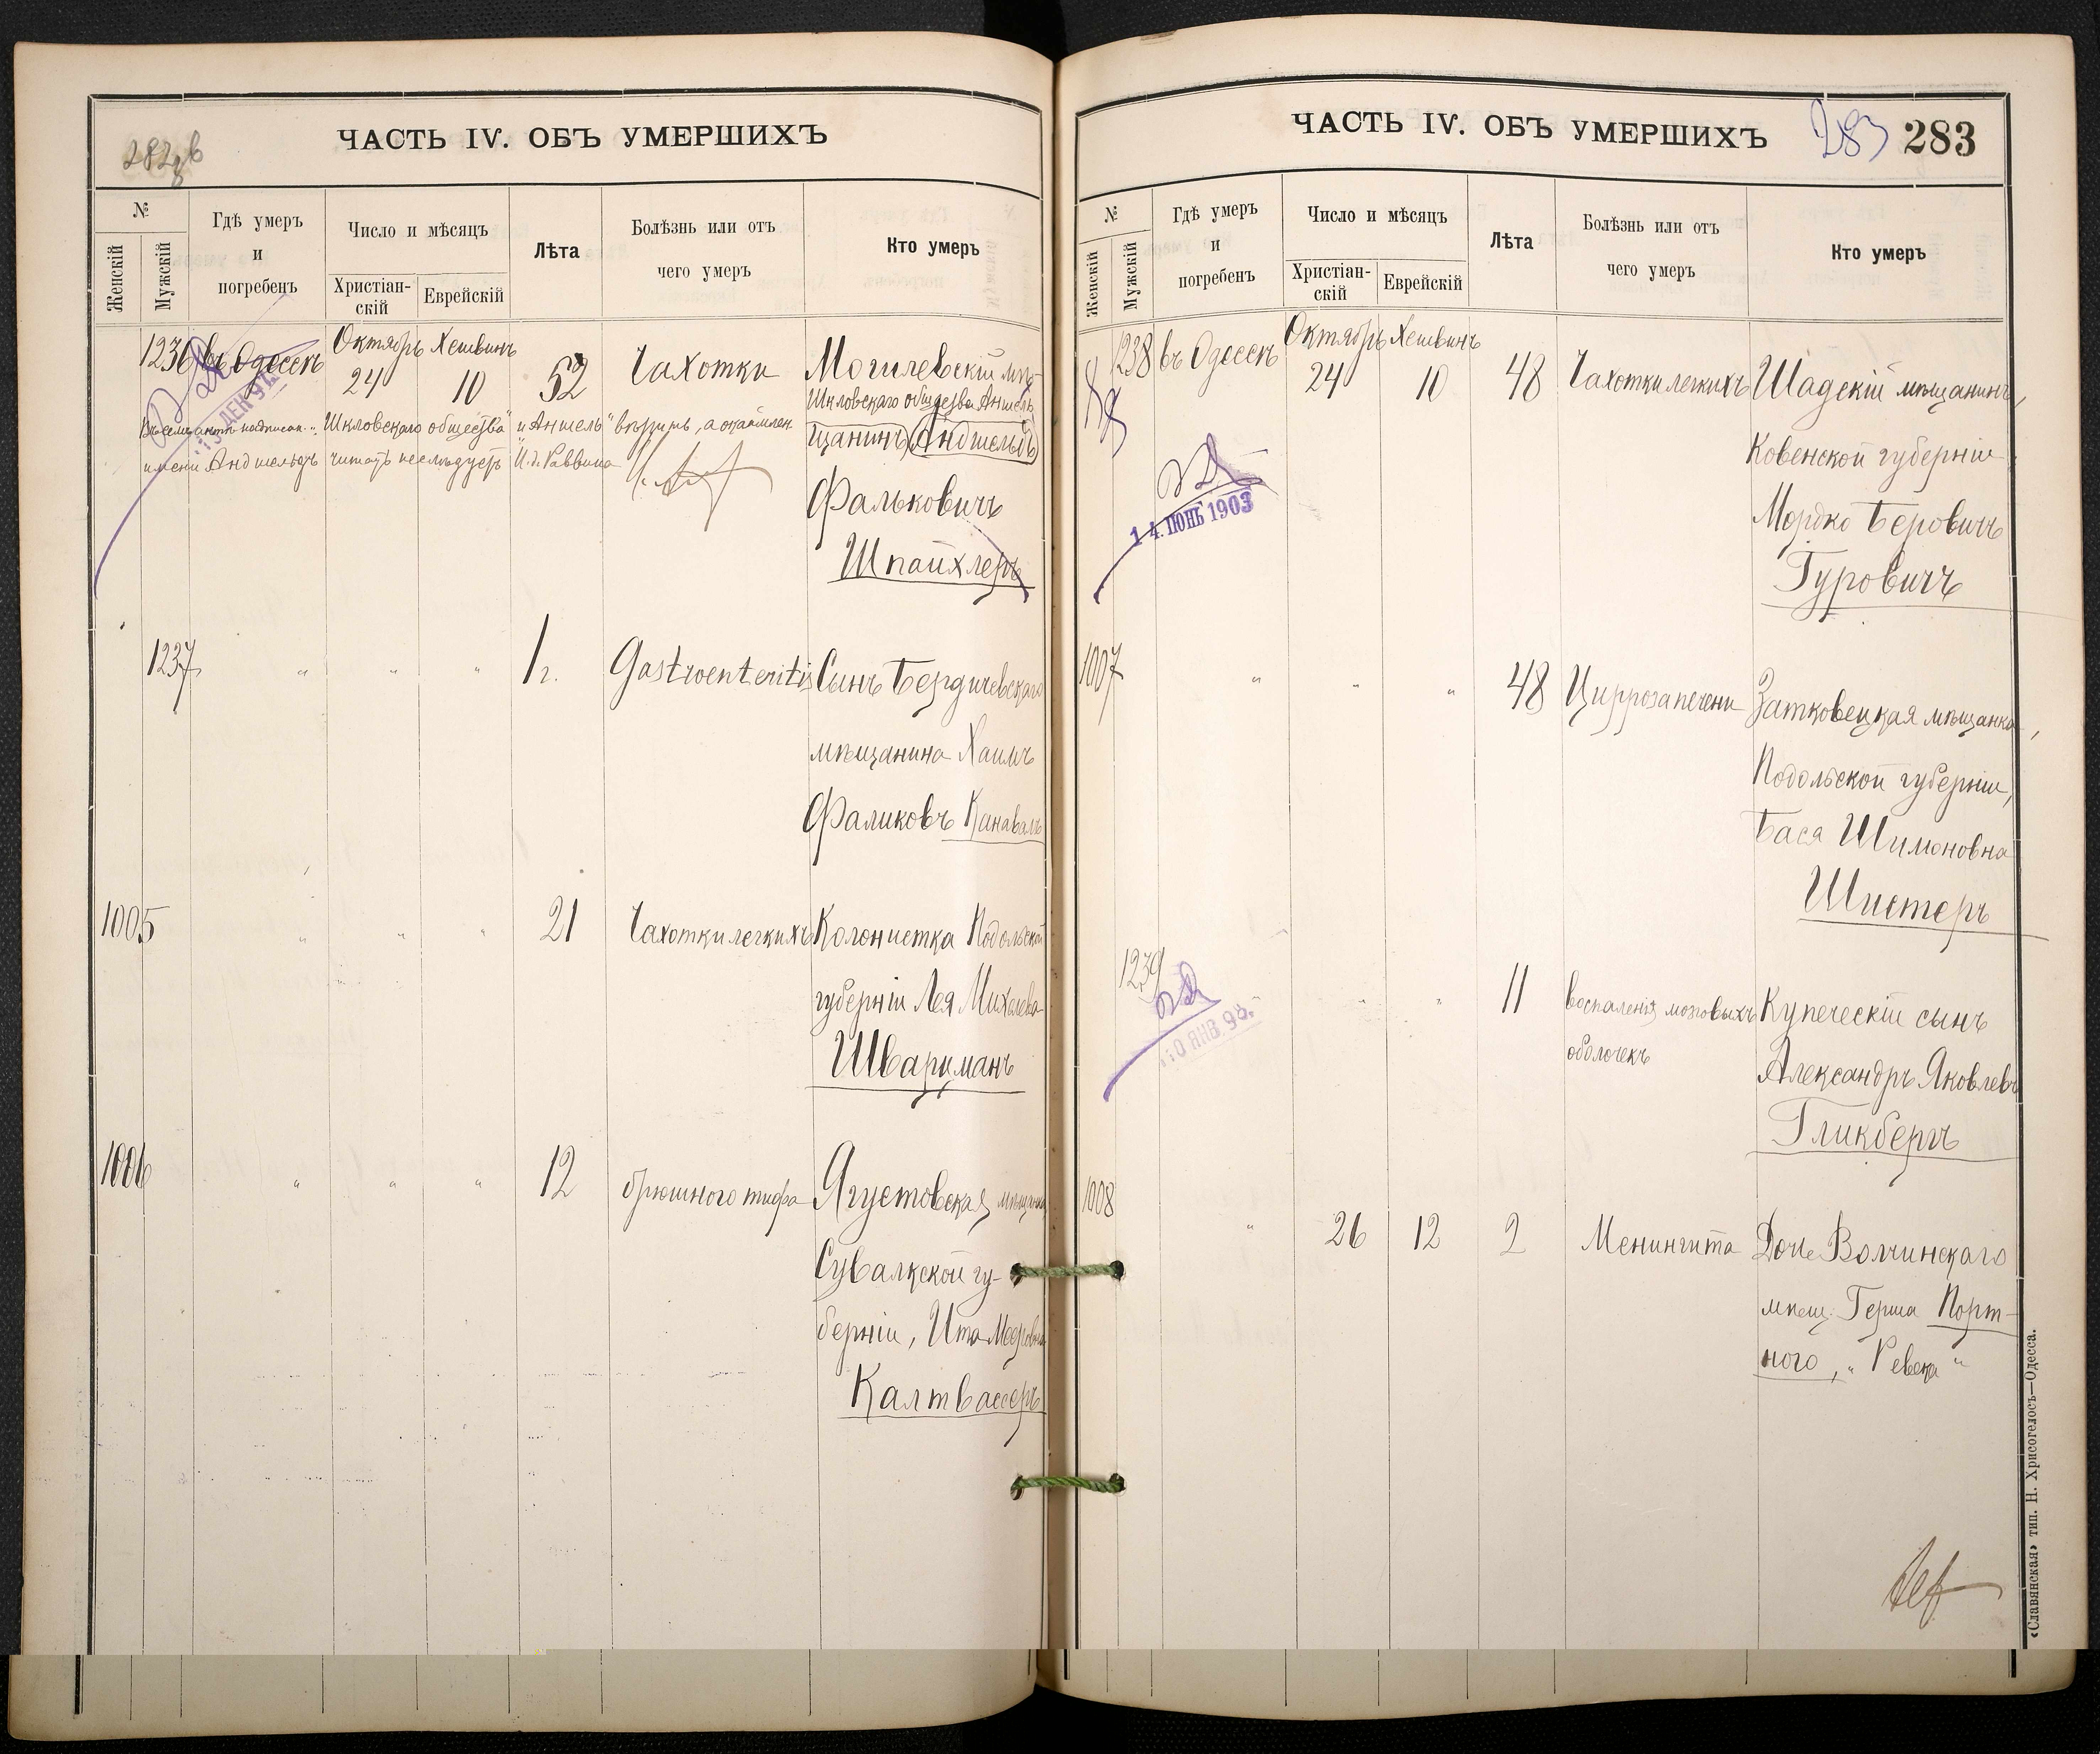 282 об
ЧАСТЬ IV. ОБЪ УМЕРШИХЪ
№
Женскій
Мужскій
Гдѣ умеръ
и
погребенъ
Число и мѣсяцъ
Христіан-
скій
Еврейскій
Лѣта
Болѣзнь или отъ
чего умеръ
Кто умеръ
1236 въ Одессѣ Октябрь 24 Хешвинъ 10 52 Чахотки Могилевскій мѣ-
Шкловскаго общества Аншель
щанинъ Андшельдъ
Фальковичъ
Шпайхлеръ
Въ семъ актѣ надписан. „Шкловскаго общества" и „Аншель" вѣрить, а окаймлен.
имени Андшельдъ читать не слѣдуетъ И. д. Раввина
15 ДЕК 97.
1237 " " " 1 г. Gastroenteritis Сынъ Бердичевскаго
мѣщанина Хаимъ
Фаликовъ Канаваль
1005 " " " 21 Чахотки легкихъ Колонистка Подольской
губерніи Лея Михелева
Шварцманъ
1006 " " " 12 брюшного тифа Ягустовская мѣщанка
Сувалкской гу-
берніи, Ита Мееровна
Калтвассеръ
ЧАСТЬ IV. ОБЪ УМЕРШИХЪ
283 283
№
Женскій
Мужскій
Гдѣ умеръ
и
погребенъ
Число и мѣсяцъ
Христіан-
скій
Еврейскій
Лѣта
Болѣзнь или отъ
чего умеръ
Кто умеръ
1238 въ Одессѣ Октябрь 24 Хешвинъ 10 48 Чахотки легкихъ Шадскій мѣщанинъ,
Ковенской губерніи
Мордко Беровичъ
Гуровичъ
14 ІЮНЬ 1903
1007 " " " 48 Цирроза печени Затковецкая мѣщанка,
Подольской губерніи,
Бася Шимоновна
Шистеръ
1239 " " 11 воспаленія мозговыхъ Купеческій сынъ
оболочекъ
Александръ Яковлевъ
Гликбергъ
10 ЯНВ. 98.
1008 " 26 12 2 Менингита Дочь Волчинскаго
мѣщ. Герша Порт-
ного, „Ревека"
«Славянская» тип. Н. Хрисогелосъ—Одесса.